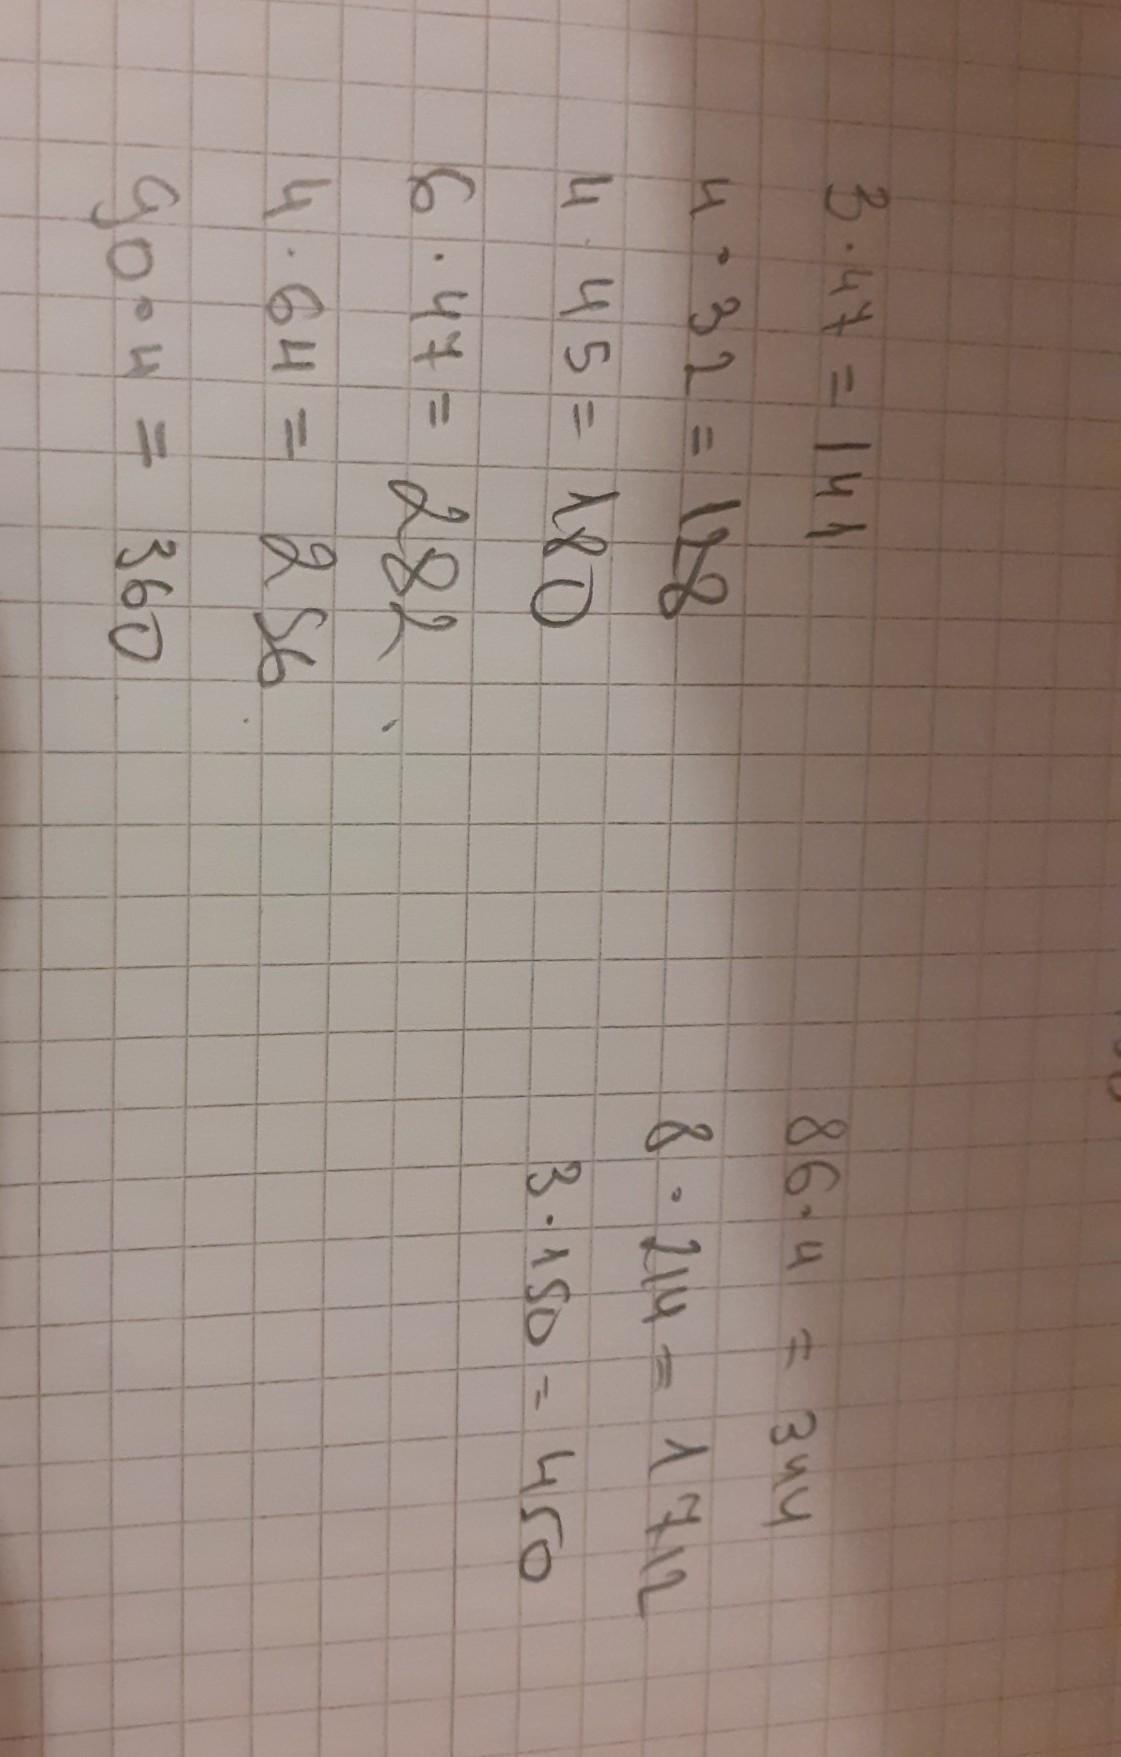 3·47=141
4·32=128
4·45=180
6·47=282
4·64=256
90·4=360
86·4=344
8·214=1712
3·150=450